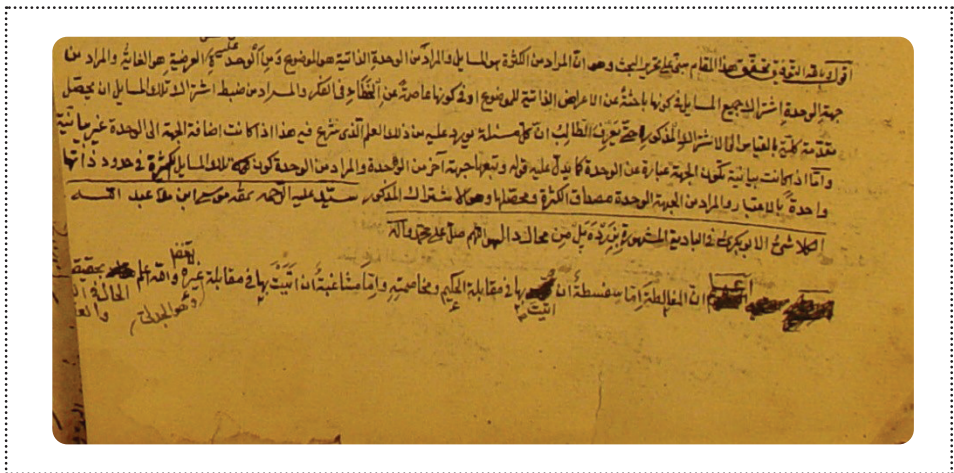 اقول بالله التوفيق تحقيق هذا المقام مبنى على تحرير البحث وهو ان المراد من الكثرة هو المسايل والمراد من الوحدة الذاتية هو الموضوع ومن الوحدة العرضية هو الغاية والمراد من
جهة الوحدة اشتراك جميع المسايل فى كونها باحثة عن الاعراض الذاتية للموضوع وفى كونها عاصمة عن الخطاء فى الفكر والمراد من ضبط اشتراك تلك المسايل ان يحصل
مقدمة كلية بالقياس الى الاشتراك المذكور حتى يعرف الطالب ان كل مسئلة يورد عليه من ذلك العلم الذى شرع فيه هذا اذا كانت اضافة الجهة الى الوحدة غير بيانية
واما اذا كانت بيانية تكون الجهة عبارة عن الوحدة كما يدل عليه قوله وتبعها جهة آخر من الوحدة والمراد من الوحدة كون تلك المسايل كثيرة فى حدود ذاتها
واحدة بالاعتبار والمراد من الجهة الوحدة مصداق الكثرة ومحصلها وهو الاشتراك المذكور سيد عليه الرحمه موسى ابن عبد الله
الكلاشى الابوبكرى فى البادية المشهورة من محال
ان المغالطة اما سفسطة ان اتيت بها فى مقابلة الحكيم ومخاصمته واما مشاغبة ان اتيت بها فى مقابلة غيره والله اعلم بحقيقة
وهو الجدلى
الحال